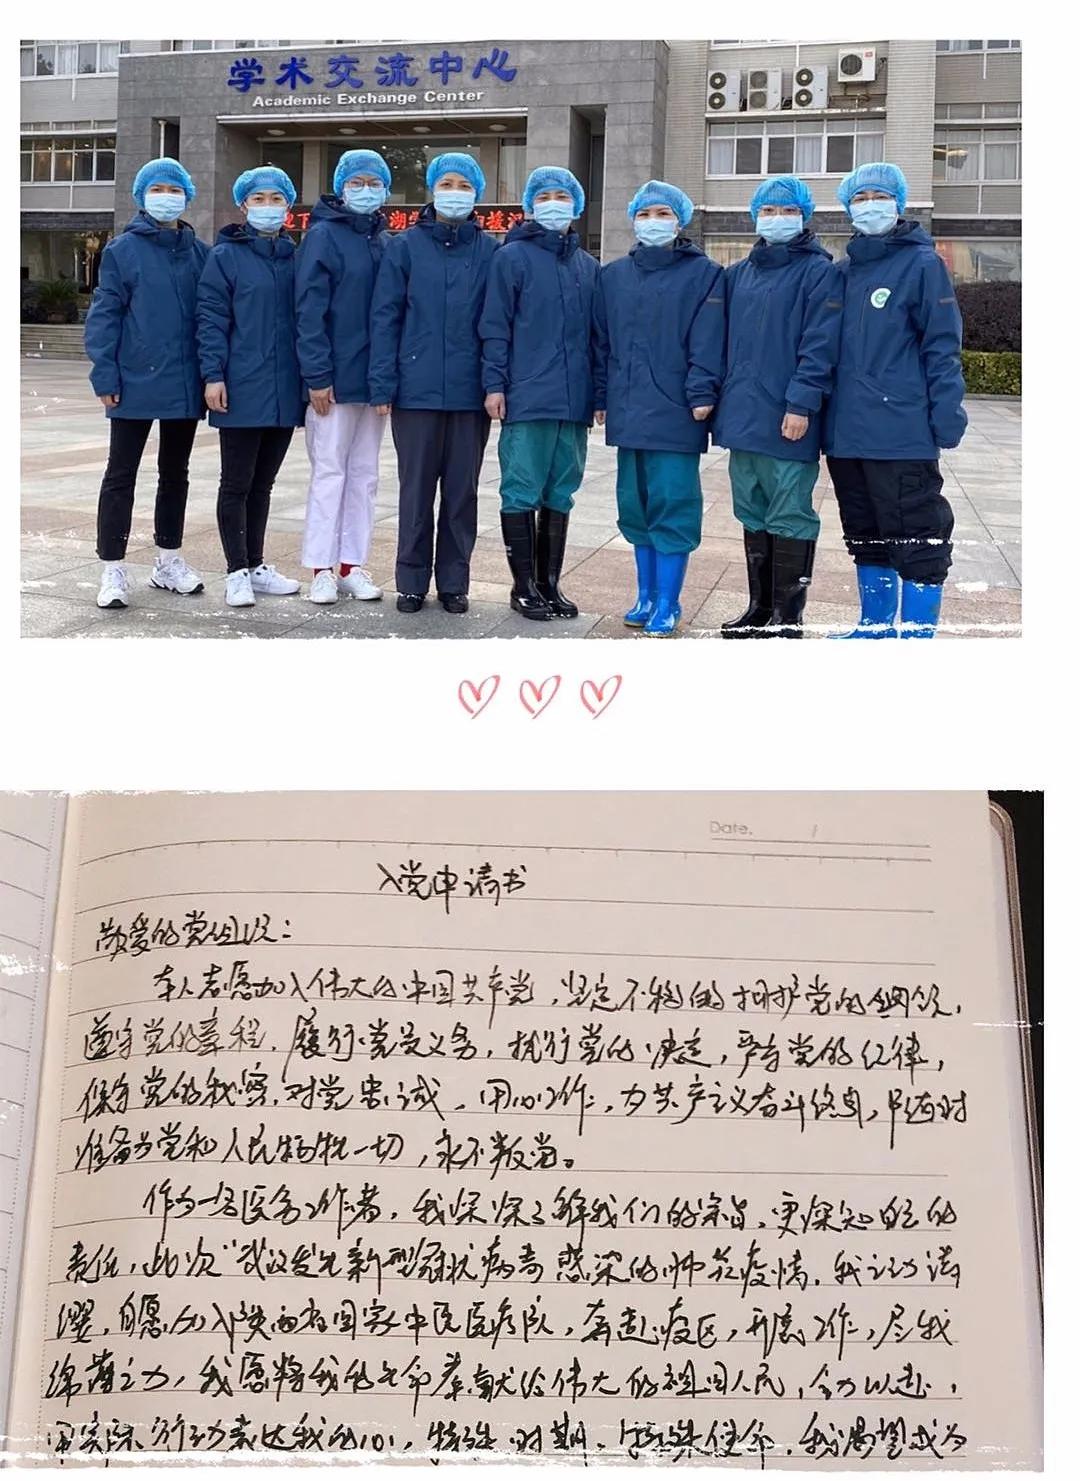 学术交流中心
Academic Exchange Center
Date. /
入党申请书
敬爱的党组织：
本人志愿加入伟大的中国共产党，坚定不移的拥护党的纲领，
遵守党的章程，履行党员义务，执行党的决定，严守党的纪律，
保守党的秘密，对党忠诚，用心工作，为共产主义奋斗终身，早已时
准备为党和人民牺牲一切，永不叛党。
作为一名医务工作者，我深深了解我们的宗旨，更深知自己的
责任，此次“武汉发生新型冠状病毒感染的肺炎疫情，我主动请
缨，自愿加入陕西省国家中医医疗队，奔赴疫区，开展工作，尽我
绵薄之力，我愿将我的生命奉献给伟大的祖国人民，全力以赴，
用实际行动表达我的心，特殊时期，特殊使命，我渴望成为